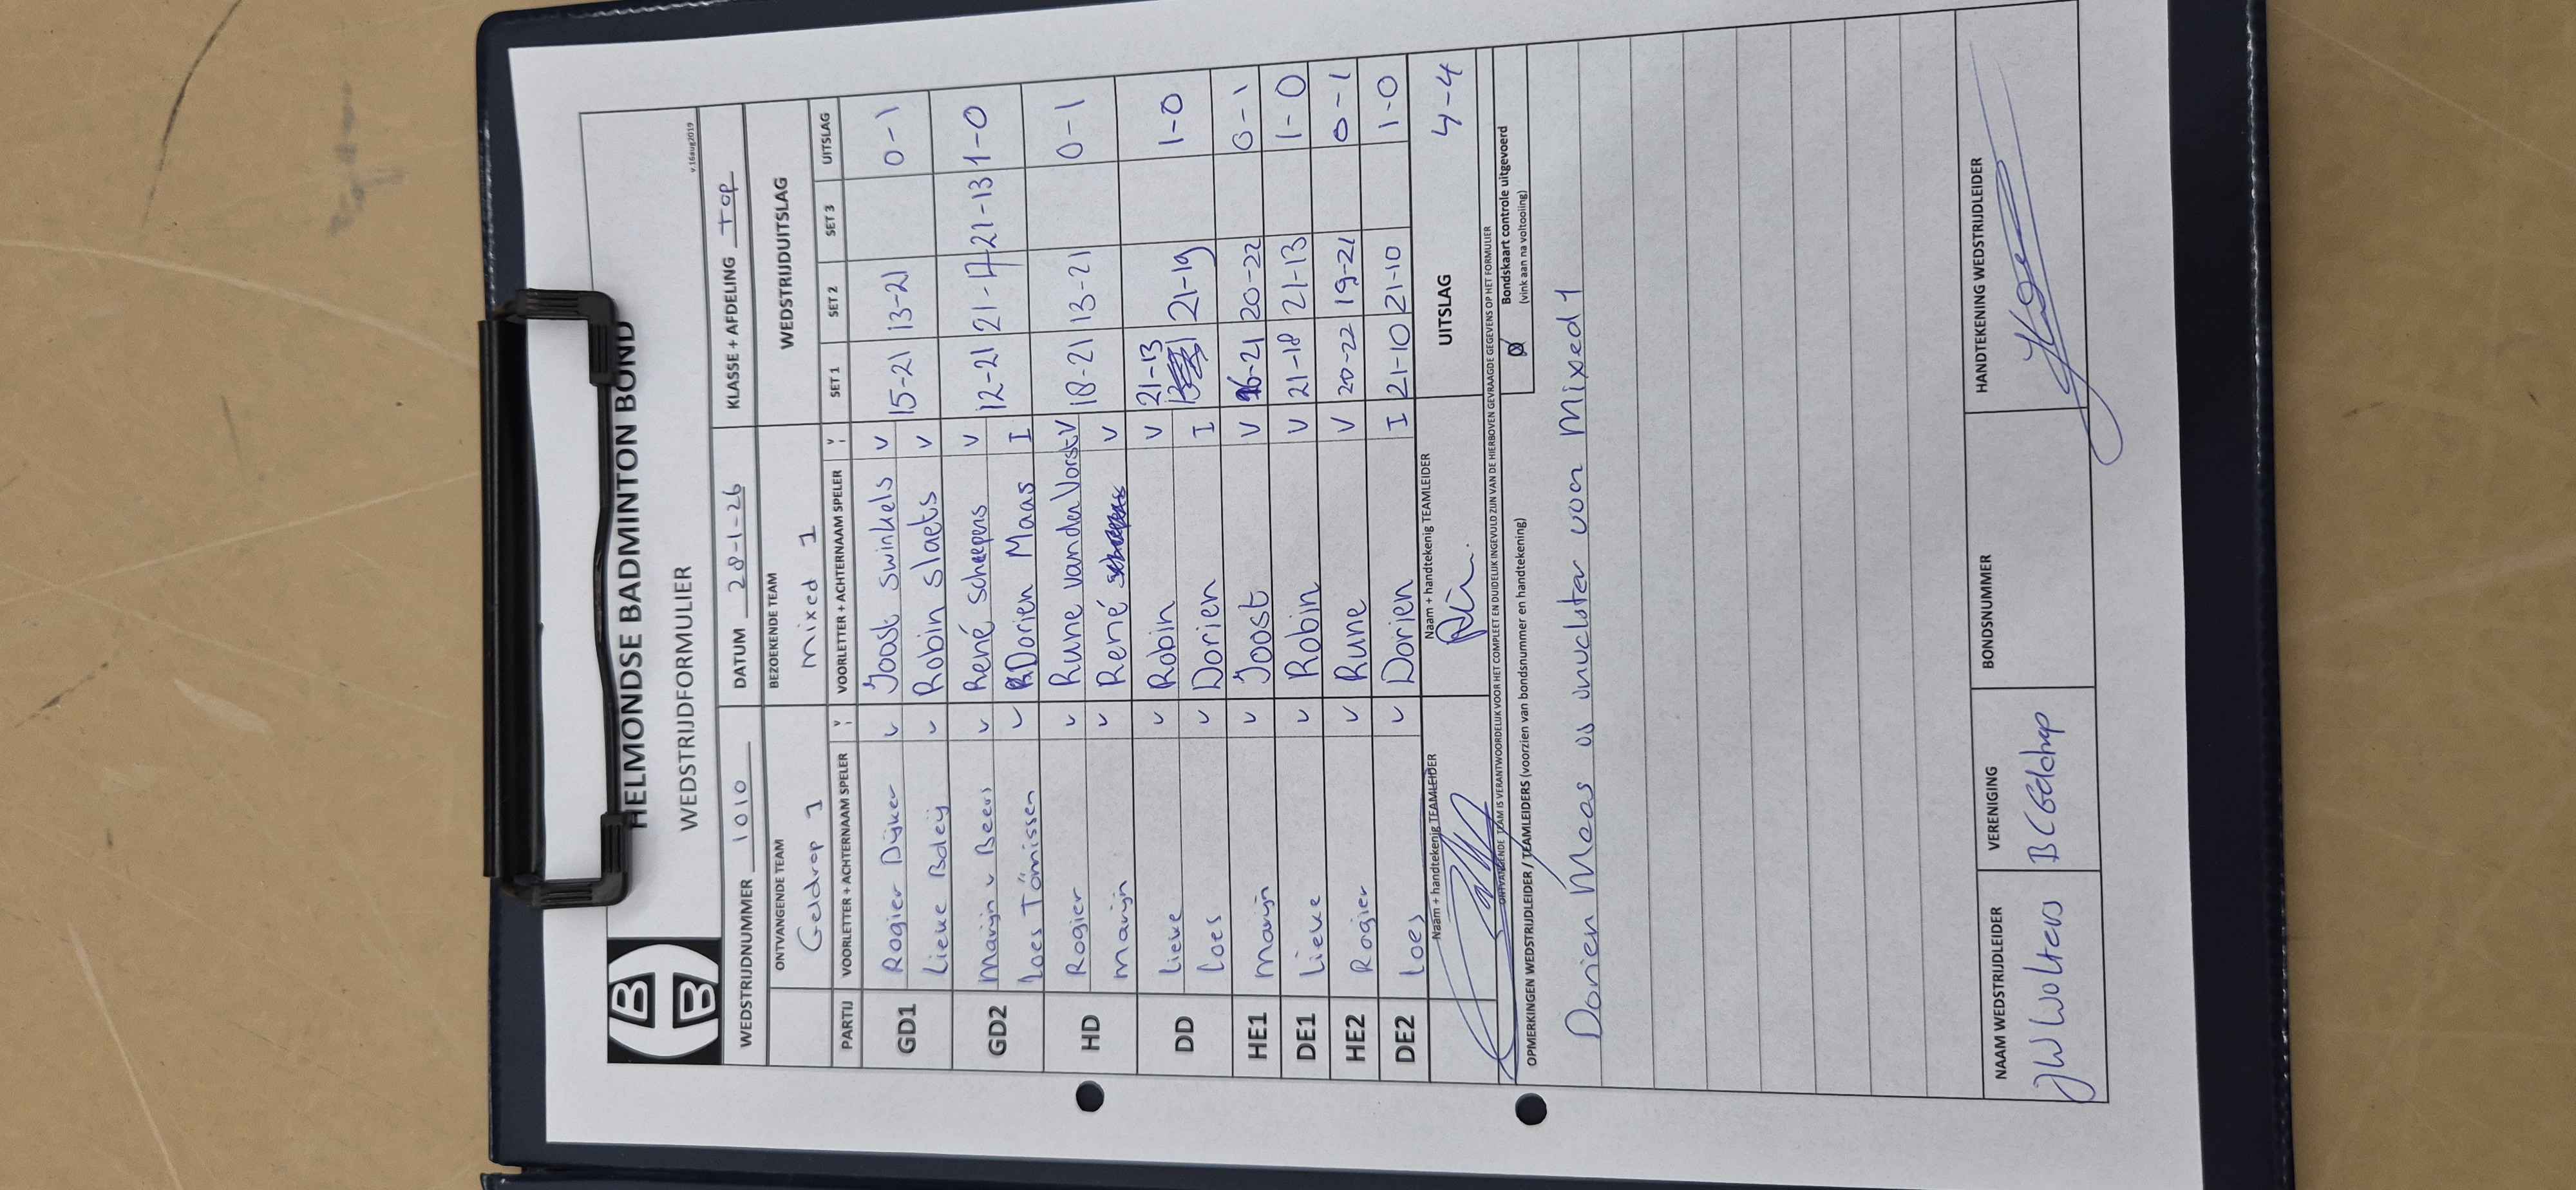 HELMONDSE BADMINTON BOND
WEDSTRIJDFORMULIER
v.16aug2019
WEDSTRIJDNUMMER 1010 DATUM 28-1-26 KLASSE + AFDELING Top
ONTVANGENDE TEAM BEZOEKENDE TEAM WEDSTRIJDUITSLAG
Geldrop 1 mixed 1
PARTIJ VOORLETTER + ACHTERNAAM SPELER VOORLETTER + ACHTERNAAM SPELER SET 1 SET 2 SET 3 UITSLAG
GD1 Rogier Dijker V Joost Swinkels V 15-21 13-21 0-1
Lieke Boleij V Robin Slaets V
GD2 Marijn v Beers V René Scheepers V 12-21 21-17 21-13 1-0
Loes Tönissen V Dorien Maas I
HD Rogier V Rune van der Vorst V 18-21 13-21 0-1
Marijn V René V
DD Lieke V Robin V 21-13 21-19 1-0
Loes V Dorien I
HE1 Marijn V Joost V 16-21 20-22 0-1
DE1 Lieke V Robin V 21-18 21-13 1-0
HE2 Rogier V Rune V 20-22 19-21 0-1
DE2 Loes V Dorien I 21-10 21-10 1-0
Naam + handtekenig TEAMLEIDER Naam + handtekenig TEAMLEIDER UITSLAG 4-4
ONTVANGENDE TEAM IS VERANTWOORDELIJK VOOR HET COMPLEET EN DUIDELIJK INGEVULD ZIJN VAN DE HIERBOVEN GEVRAAGDE GEGEVENS OP HET FORMULIER
OPMERKINGEN WEDSTRIJDLEIDER / TEAMLEIDERS (voorzien van bondsnummer en handtekening) Bondskaart controle uitgevoerd
(vink aan na voltooiing)
Dorien Maas is invalster van Mixed 1
NAAM WEDSTRIJDLEIDER VERENIGING BONDSNUMMER HANDTEKENING WEDSTRIJDLEIDER
JW Wolters BC Geldrop